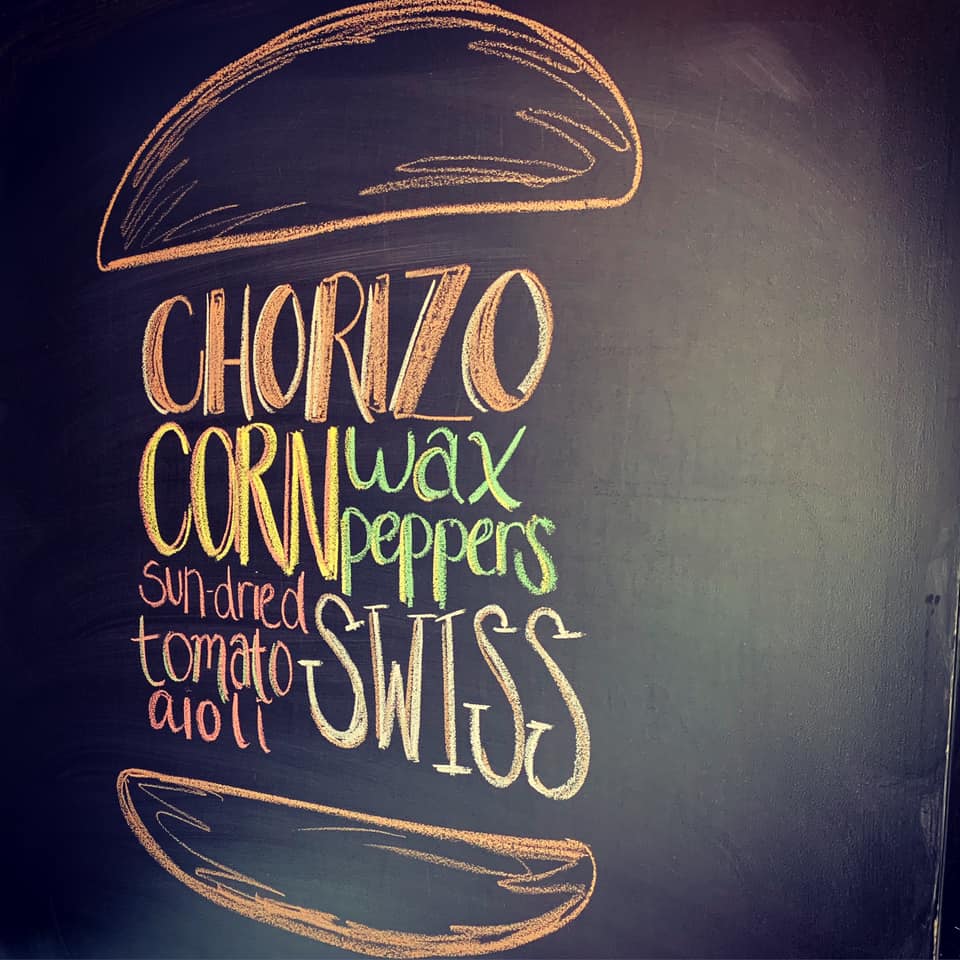 CHORIZO
CORN wax
peppers
sun-dried
tomato SWISS
aioli